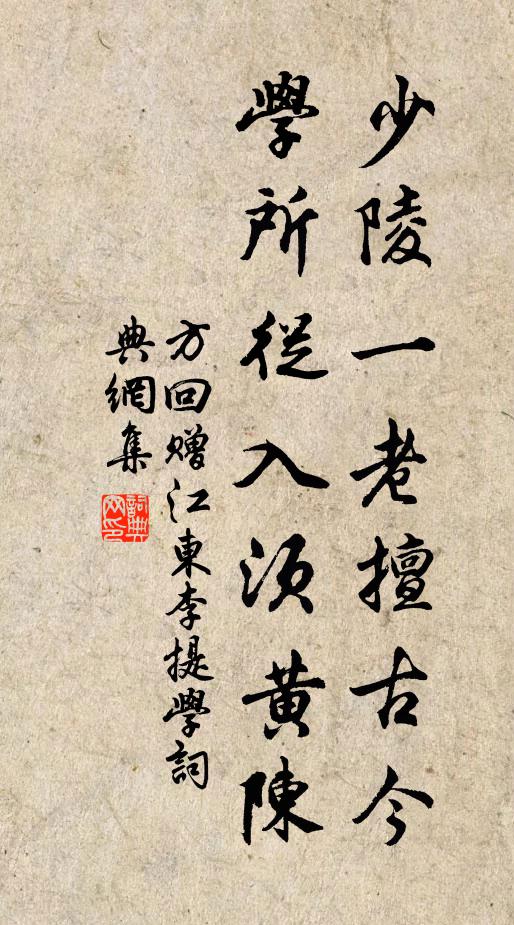 少陵一老擅古今
學所從入須黄陳
方回贈江東李提學詞
典網集
詞典网印